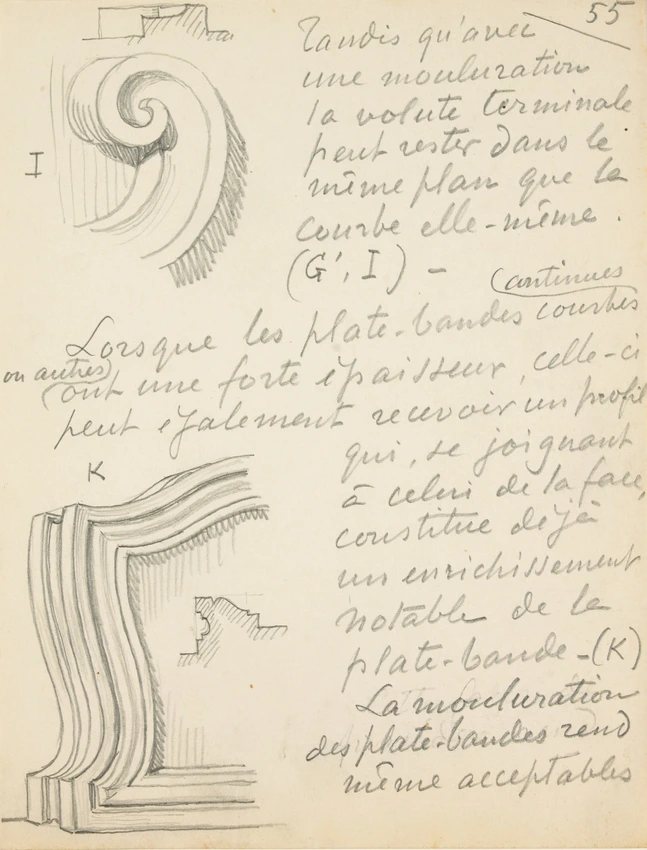 55
Tandis qu'avec
une mouluration
la volute terminale
peut rester dans le
même plan que la
courbe elle-même.
(G', I) -
I
(continues
Lorsque les plate-bandes courbes
ou autres)
ont une forte épaisseur, celle-ci
peut également recevoir un profil
K
qui, se joignant
à celui de la face,
constitue déjà
un enrichissement
notable de la
plate-bande - (K)
La mouluration
des plate-bandes rend
même acceptables